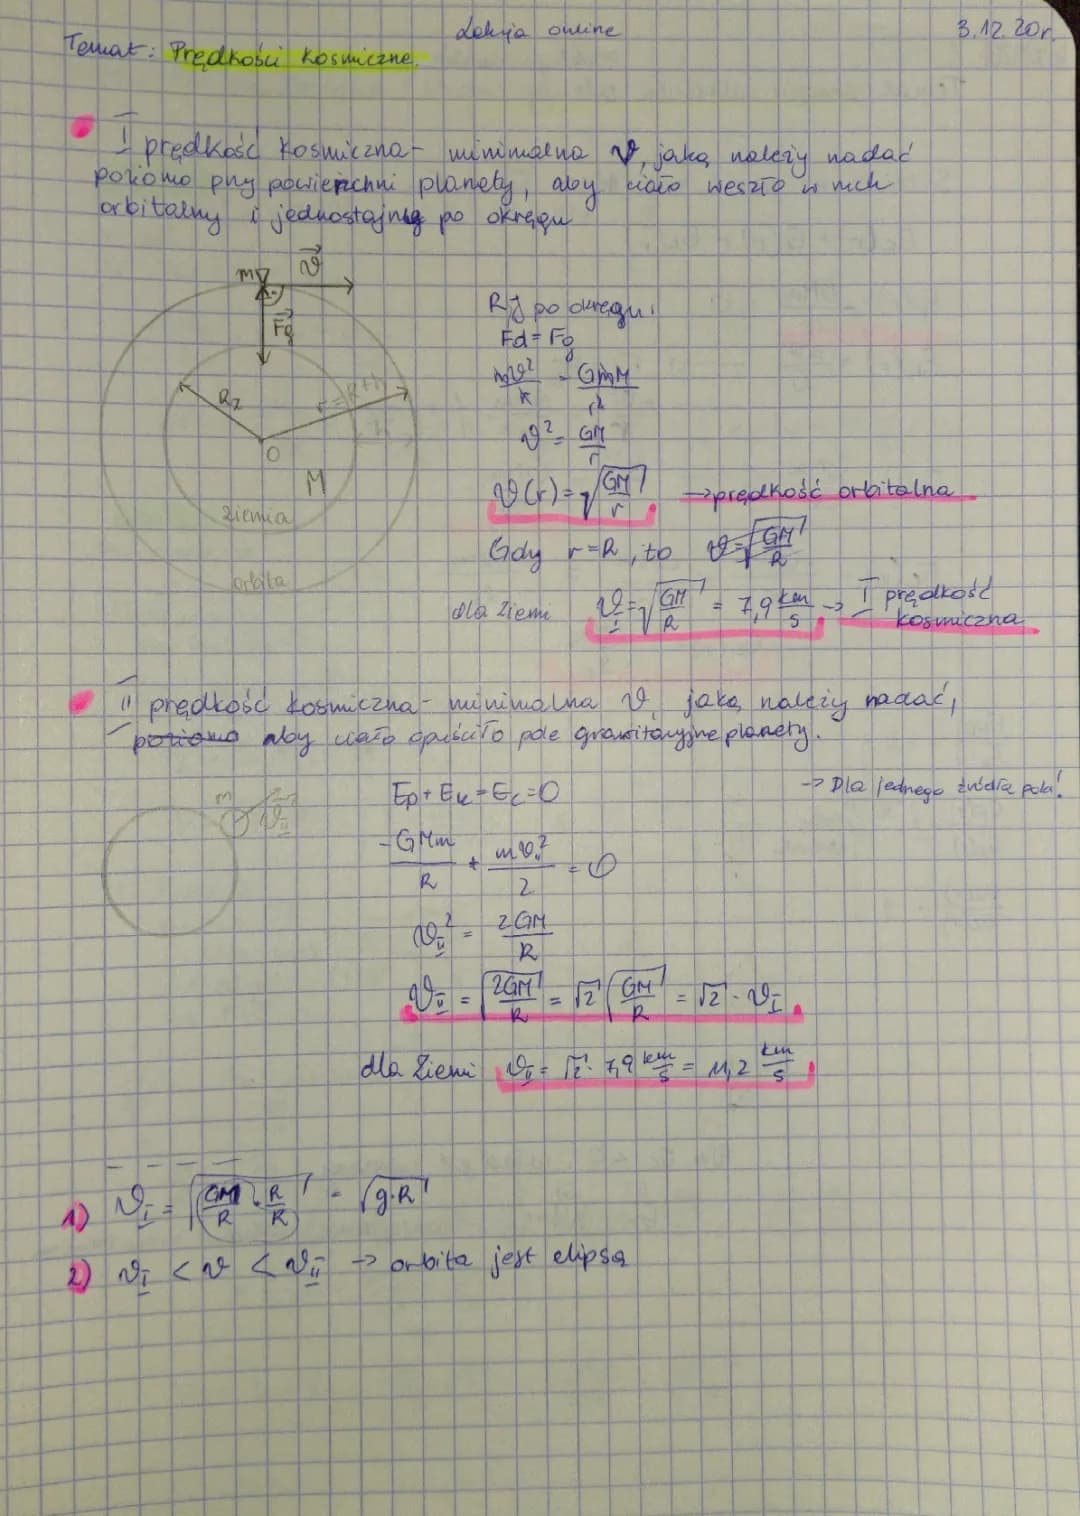 Lekcja online
3.12.20r.
Temat: Prędkości kosmiczne.
I prędkość kosmiczna - minimalna v, jaką należy nadać
poziomo przy powierzchni planety, aby ciało weszło w ruch
orbitalny i jednostajny po okręgu
m v⃗
F⃗g
Rz r=R+h
h
O
M
Ziemia
orbita
Rj po okręgu:
Fd = Fg
mv²/r = GmM/r²
v² = GM/r
v(r) = √(GM/r) → prędkość orbitalna
Gdy r=R, to v = √(GM/R)
dla Ziemi v_I = √(GM/R) = 7,9 km/s → I prędkość
kosmiczna
II prędkość kosmiczna - minimalna v, jaką należy nadać,
poziomo aby ciało opuściło pole grawitacyjne planety.
m v⃗_II
Ep + Ek = Ec = 0
→ Dla jednego źródła pola!
-GMm/R + mv_II²/2 = 0
v_II² = 2GM/R
v_II = √(2GM/R) = √2 √(GM/R) = √2 · v_I
dla Ziemi v_II = √2 · 7,9 km/s = 11,2 km/s
1) v_I = √(GM/R · R/R) = √(g·R)
2) v_I < v < v_II → orbita jest elipsą